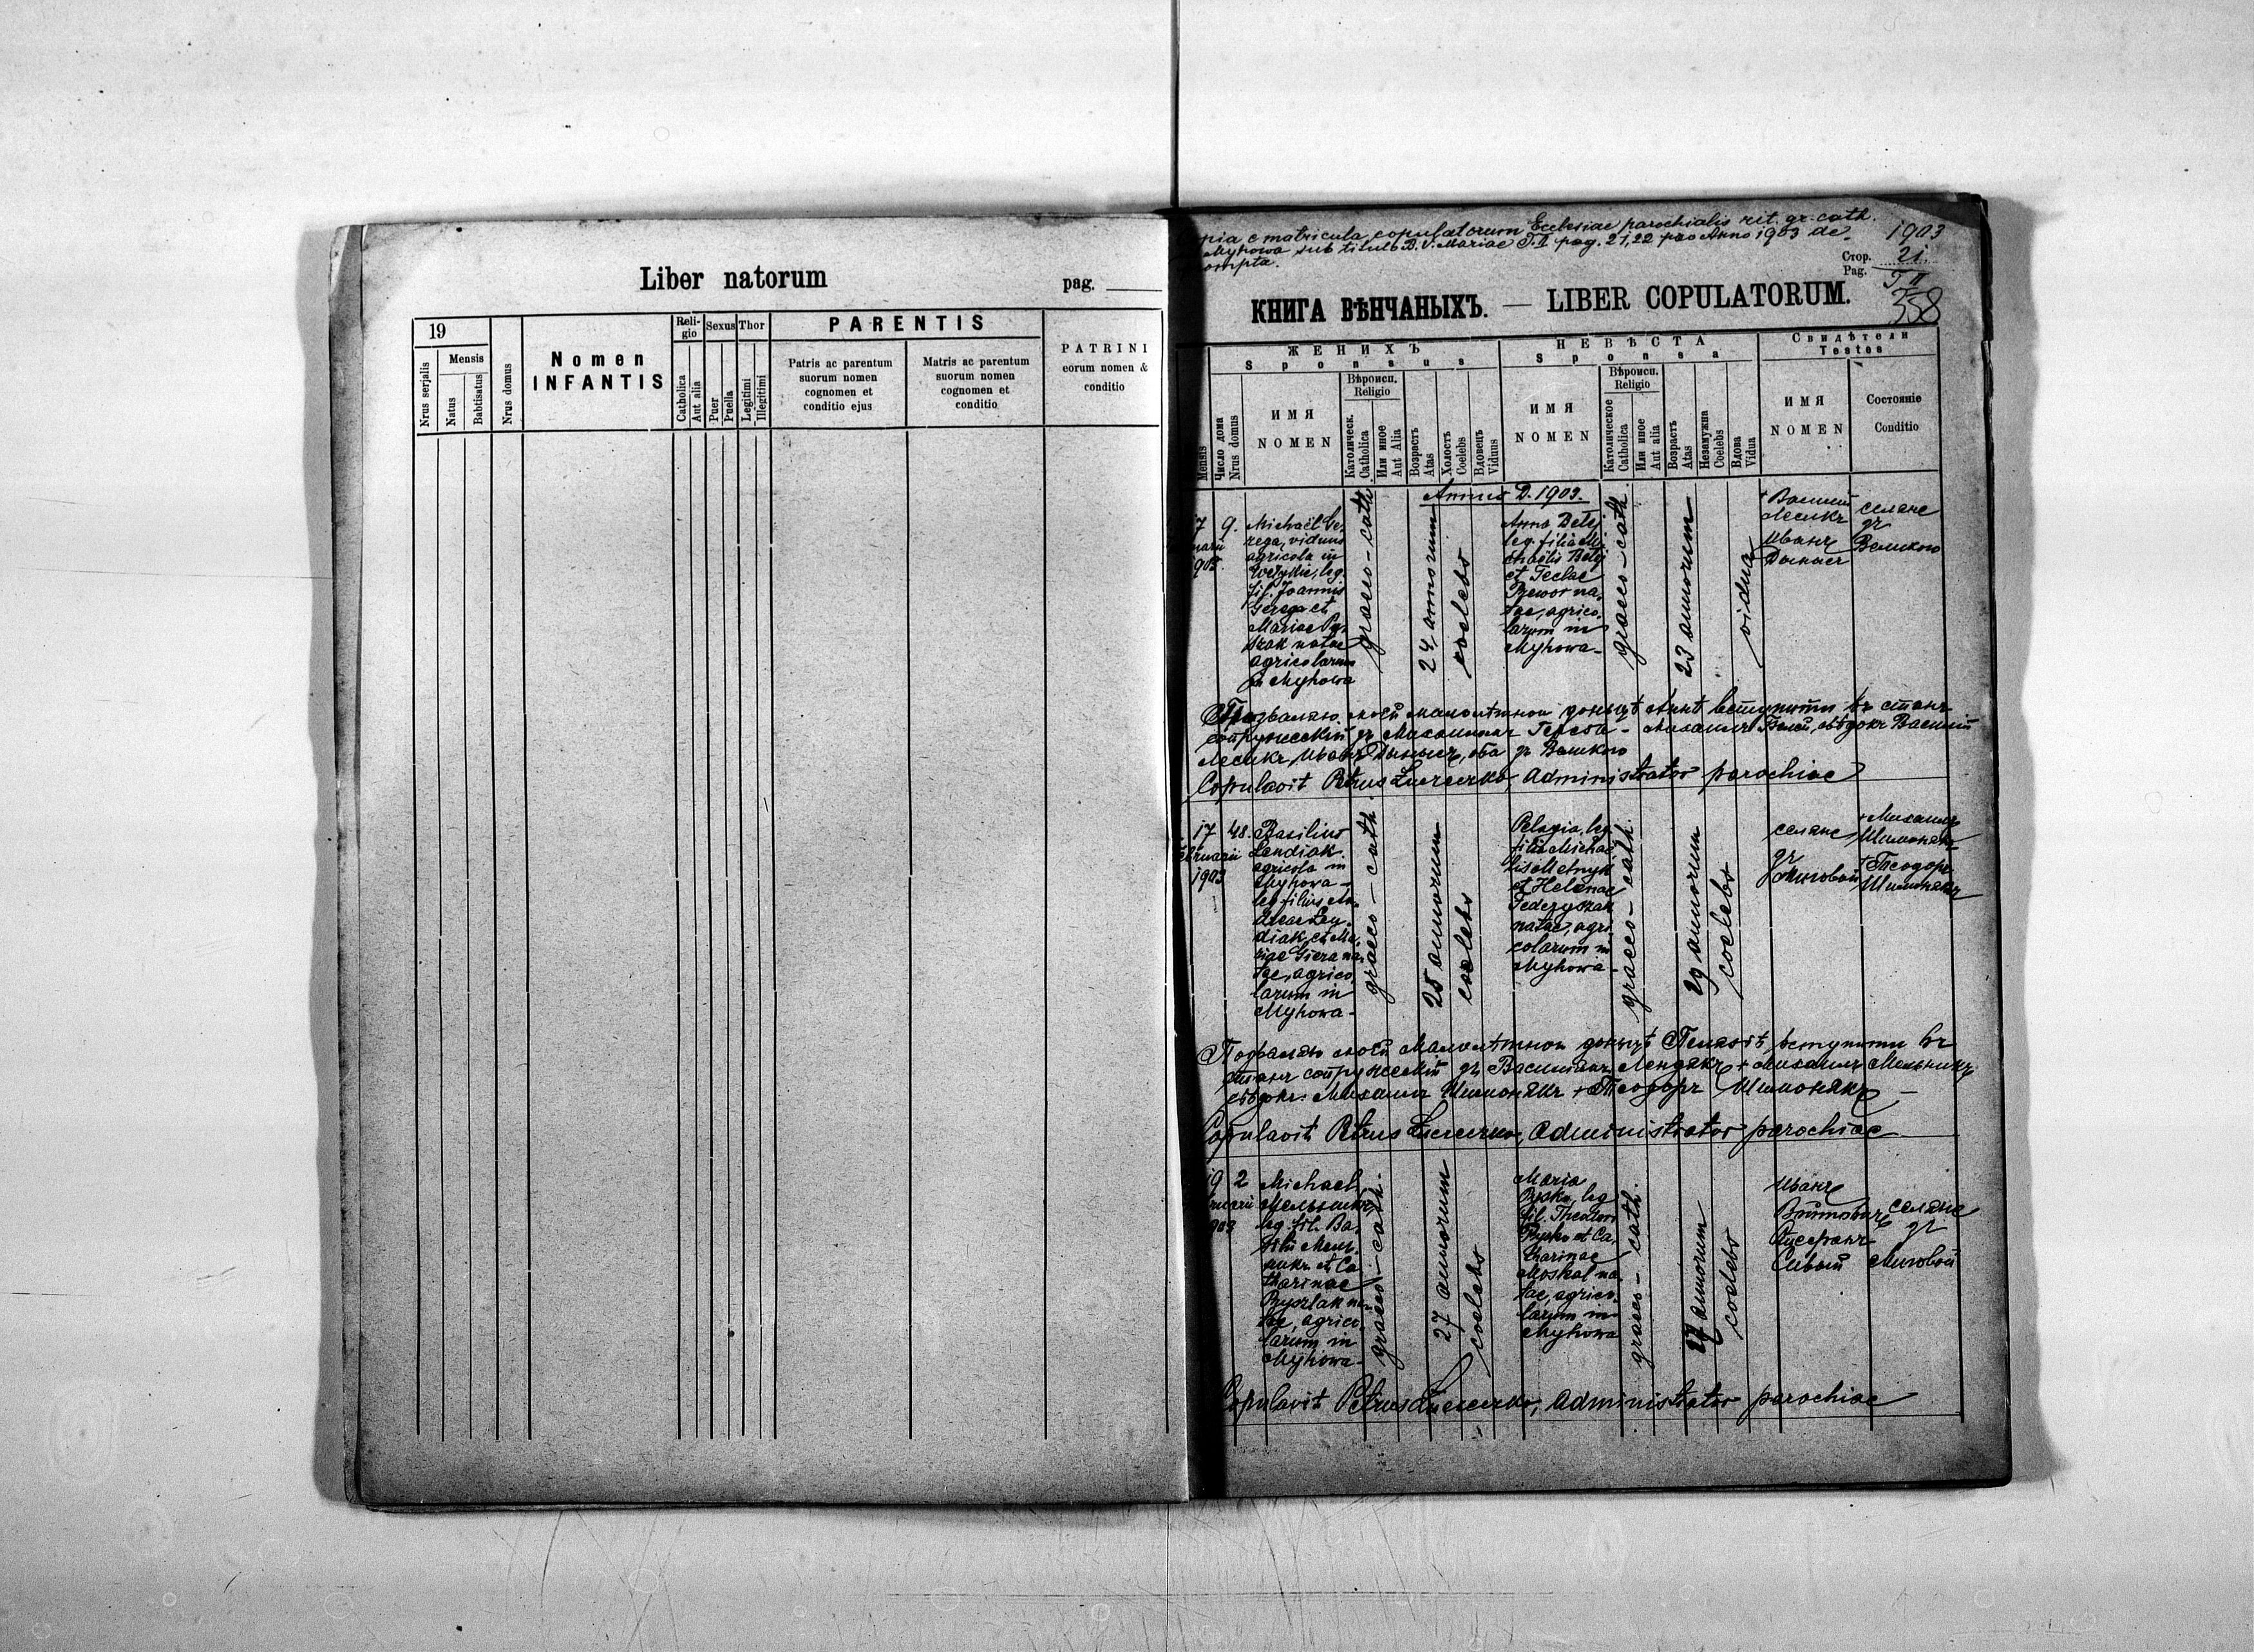 Liber natorum
pag.
19
Nrus serjalis
Mensis
Natus
Babtisatus
Nrus domus
Nomen
INFANTIS
Reli-
gio
Catholica
Aut alia
Sexus
Puer
Puella
Thor
Legitimi
Illegitimi
PARENTIS
Patris ac parentum
suorum nomen
cognomen et
conditio ejus
Matris ac parentum
suorum nomen
cognomen et
conditio
PATRINI
eorum nomen &
conditio
pia e matricula copulatorum Ecclesiae parochialis rit. gr. cath.
Myhowa sub titulo B. V. Mariae T. II pag. 21, 22 pro Anno 1903 de
ompta.
1903
Стор.
Pag.
21.
T II
358
КНИГА ВѢНЧАНЫХЪ. — LIBER COPULATORUM.
Mensis
Число дома
Nrus domus
ЖЕНИХЪ
Sponsus
ИМЯ
NOMEN
Вѣроисп.
Religio
Католическ.
Catholica
Или иное
Aut Alia
Возрастъ
Atas
Холостъ
Coelebs
Вдовецъ
Viduus
НЕВѢСТА
Sponsa
ИМЯ
NOMEN
Вѣроисп.
Religio
Католическое
Catholica
Или иное
Aut alia
Возрастъ
Atas
Незамужна
Coelebs
Вдова
Vidua
Свидѣтели
Testes
ИМЯ
NOMEN
Состояніе
Conditio
Annus D. 1903.
7
9.
Michaël Ge
rega, viduus
agricola in
leg.
fil. Joannis
Gerega et
Mariae
natae
agricolarum
in Myhowa
graeco-cath
24 annorum
coelebs
Anna Betej
leg. filia Mi
chaelis Betej
et Teclae
na
tae, agrico
larum in
Myhowa
graeco-cath
23 annorum
vidua
Василій
Лесикъ
Иванъ
селяне
зъ
Великого
Позваляю моєй малолѣтной доньцѣ Аннѣ вступити въ станъ
супружескій зъ Михаиломъ
Лесикъ, Иванъ оба зъ Великого
Copulavit Petrus administrator parochiae
17
1903
48.
Basilius
Lendiak
agricola in
Myhowa
leg. filius An
dreae Len
diak et Ma
riae Giera na
tae, agrico
larum in
Myhowa
graeco-cath
25 annorum
coelebs
Pelagia, leg
filia Michae
lis Melnyk
et Helenae
Fedczyszak
natae, agri
colarum in
Myhowa
graeco-cath.
29 annorum
coelebs
селяне
зъ
Миговой
+ Михаилъ
Шимонякъ
+ Теодоръ
Шимонякъ
Позваляю моєй малолѣтной доньцѣ Пелагіѣ вступити въ
станъ супружескій зъ Василіемъ Лендякъ + Михаилъ Мельникъ
свѣдки: Михаилъ Шимонякъ + Теодоръ Шимонякъ
Copulavit Petrus administrator parochiae
2
Michael
Мельникъ
leg. fil. Ba
silii
et Ca
tharinae
na
tae, agrico
larum in
Myhowa
graeco-cath.
27 annorum
coelebs
Maria
leg
fil. Theodori
et Ca
tharinae
Moskal na
tae, agrico
larum in
Myhowa
graeco-cath.
annorum
coelebs
Иванъ
Войтовичъ
Сивый
селяне
зъ
Миговой
Copulavit Petrus administrator parochiae